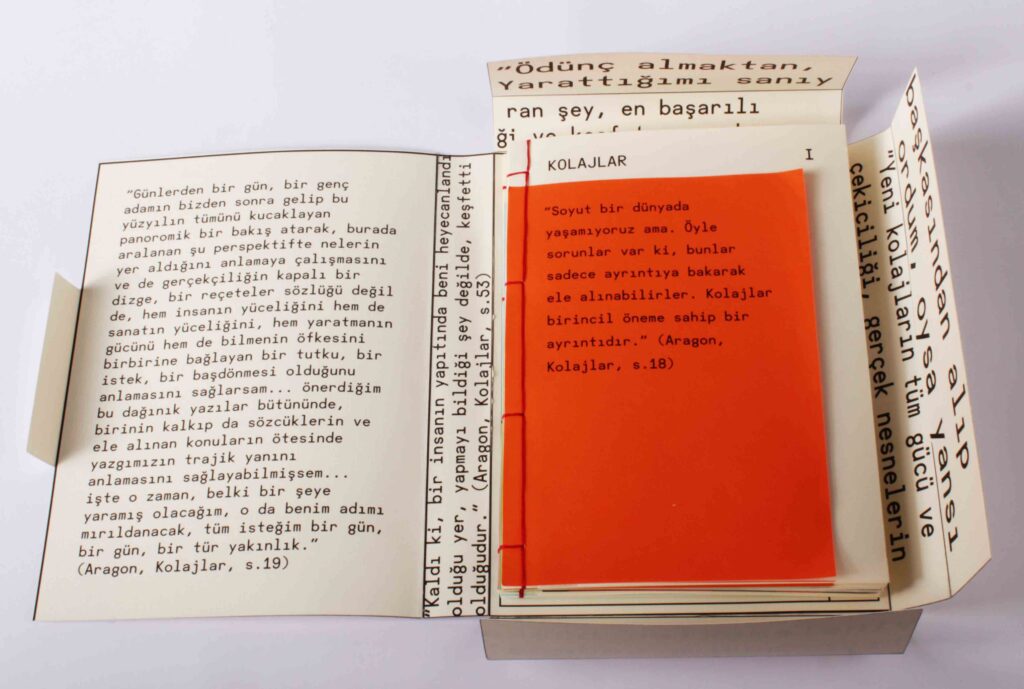 “Günlerden bir gün, bir genç
adamın bizden sonra gelip bu
yüzyılın tümünü kucaklayan
panoromik bir bakış atarak, burada
aralanan şu perspektifte nelerin
yer aldığını anlamaya çalışmasını
ve de gerçekçiliğin kapalı bir
dizge, bir reçeteler sözlüğü değil
de, hem insanın yüceliğini hem de
sanatın yüceliğini, hem yaratmanın
gücünü hem de bilmenin öfkesini
birbirine bağlayan bir tutku, bir
istek, bir başdönmesi olduğunu
anlamasını sağlarsam... önerdiğim
bu dağınık yazılar bütününde,
birinin kalkıp da sözcüklerin ve
ele alınan konuların ötesinde
yazgımızın trajik yanını
anlamasını sağlayabilmişsem...
işte o zaman, belki bir şeye
yaramış olacağım, o da benim adımı
mırıldanacak, tüm isteğim bir gün,
bir gün, bir tür yakınlık.”
(Aragon, Kolajlar, s.19)
“Kaldı ki, bir insanın yapıtında beni heyecanlandı
olduğu yer, yapmayı bildiği şey değilde, keşfetti
olduğudur.” (Aragon, Kolajlar, s.53)
“Ödünç almaktan,
Yarattığımı sanıy
ran şey, en başarılı
ği ve
KOLAJLAR I
“Soyut bir dünyada
yaşamıyoruz ama. Öyle
sorunlar var ki, bunlar
sadece ayrıntıya bakarak
ele alınabilirler. Kolajlar
birincil öneme sahip bir
ayrıntıdır.” (Aragon,
Kolajlar, s.18)
başkasından alıp
ordum, oysa yansı
“Yeni kolajların tüm gücü ve
çekiciliği, gerçek nesnelerin